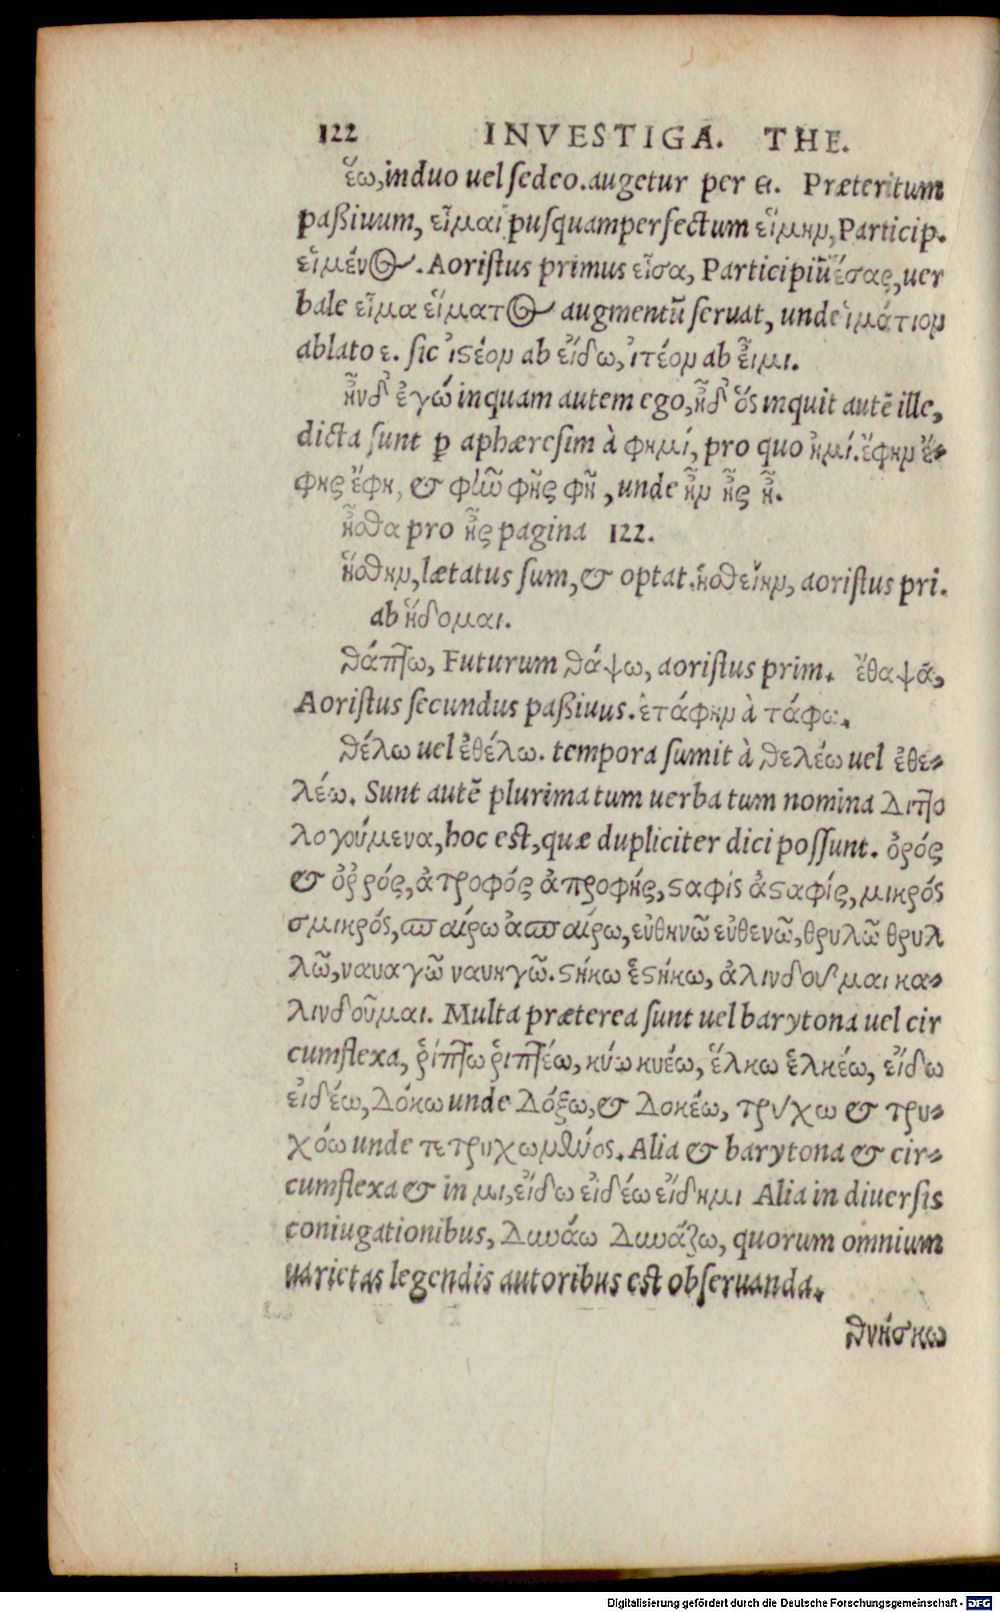 122 INVESTIGA. THE.
ἕω, induo uel sedeo. augetur per ει. Præteritum
paßiuum, εἷμαι pusquamperfectum εἵμην, Particip.
εἱμένος. Aoristus primus εἷσα, Participiũ ἕσας, uer
bale εἷμα εἵματος augmentũ seruat, unde ἱμάτιον
ablato ε. sic ἰστέον ab εἴδω, ἰτέον ab εἶμι.
ἦνδ᾽ ἐγώ inquam autem ego, ἦδ᾽ ὅς inquit autẽ ille,
dicta sunt ꝑ aphæresim à φημί, pro quo ἠμί. ἔφην ἔ-
φης ἔφη, & φῶ φῇς φῇ, unde ἦν ἦς ἦ.
ἦσθα pro ἦς pagina 122.
ἥσθην, lætatus sum, & optat. ἡσθείην, aoristus pri.
ab ἥδομαι.
θάπτω, Futurum θάψω, aoristus prim. ἔθαψα,
Aoristus secundus paßiuus. ἐτάφην à τάφω.
θέλω uel ἐθέλω. tempora sumit à θελέω uel ἐθε-
λέω. Sunt autẽ plurima tum uerba tum nomina διπο
λογούμενα, hoc est, quæ dupliciter dici possunt. ὀρός
& ὀῤῥός, ἀτροφός ἀτροφής, σαφίς ἀσαφίς, μικρός
σμικρός, παίρω ἀπαίρω, εὐθηνῶ εὐθενῶ, θρυλῶ θρυλ
λῶ, ναυαγῶ ναυηγῶ. στήκω ἑστήκω, ἀλινδοῦμαι κα-
λινδοῦμαι. Multa præterea sunt uel barytona uel cir
cumflexa, ῥίπτω ῥιπτέω, κύω κυέω, ἕλκω ἑλκέω, εἴδω
εἰδέω, δόκω unde δόξω, & δοκέω, τρύχω & τρυ-
χόω unde τετρυχωμένος. Alia & barytona & cir-
cumflexa & in μι, εἴδω εἰδέω εἴδημι Alia in diuersis
coniugationibus, δαμάω δαμάζω, quorum omnium
uarietas legendis autoribus est obseruanda.
θνήσκω
Digitalisierung gefördert durch die Deutsche Forschungsgemeinschaft - DFG